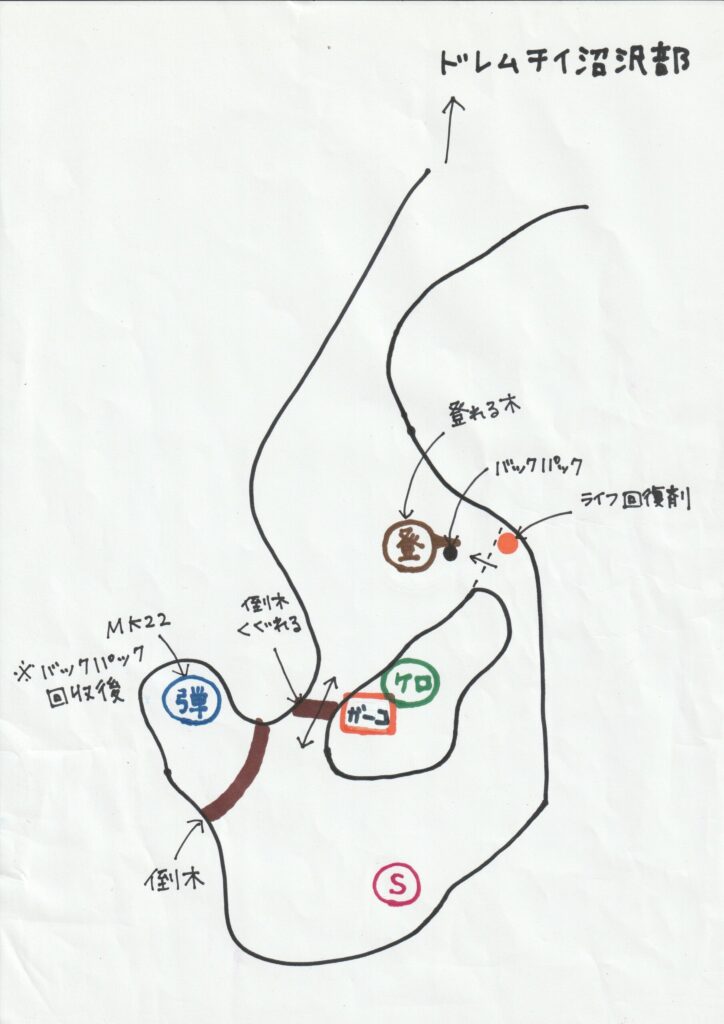 ドレムチイ沼沢部
登れる木
バックパック
ライフ回復剤
登
倒木
くぐれる
MK22
※バックパック
回収後
弾
ケロ
ガーコ
倒木
S